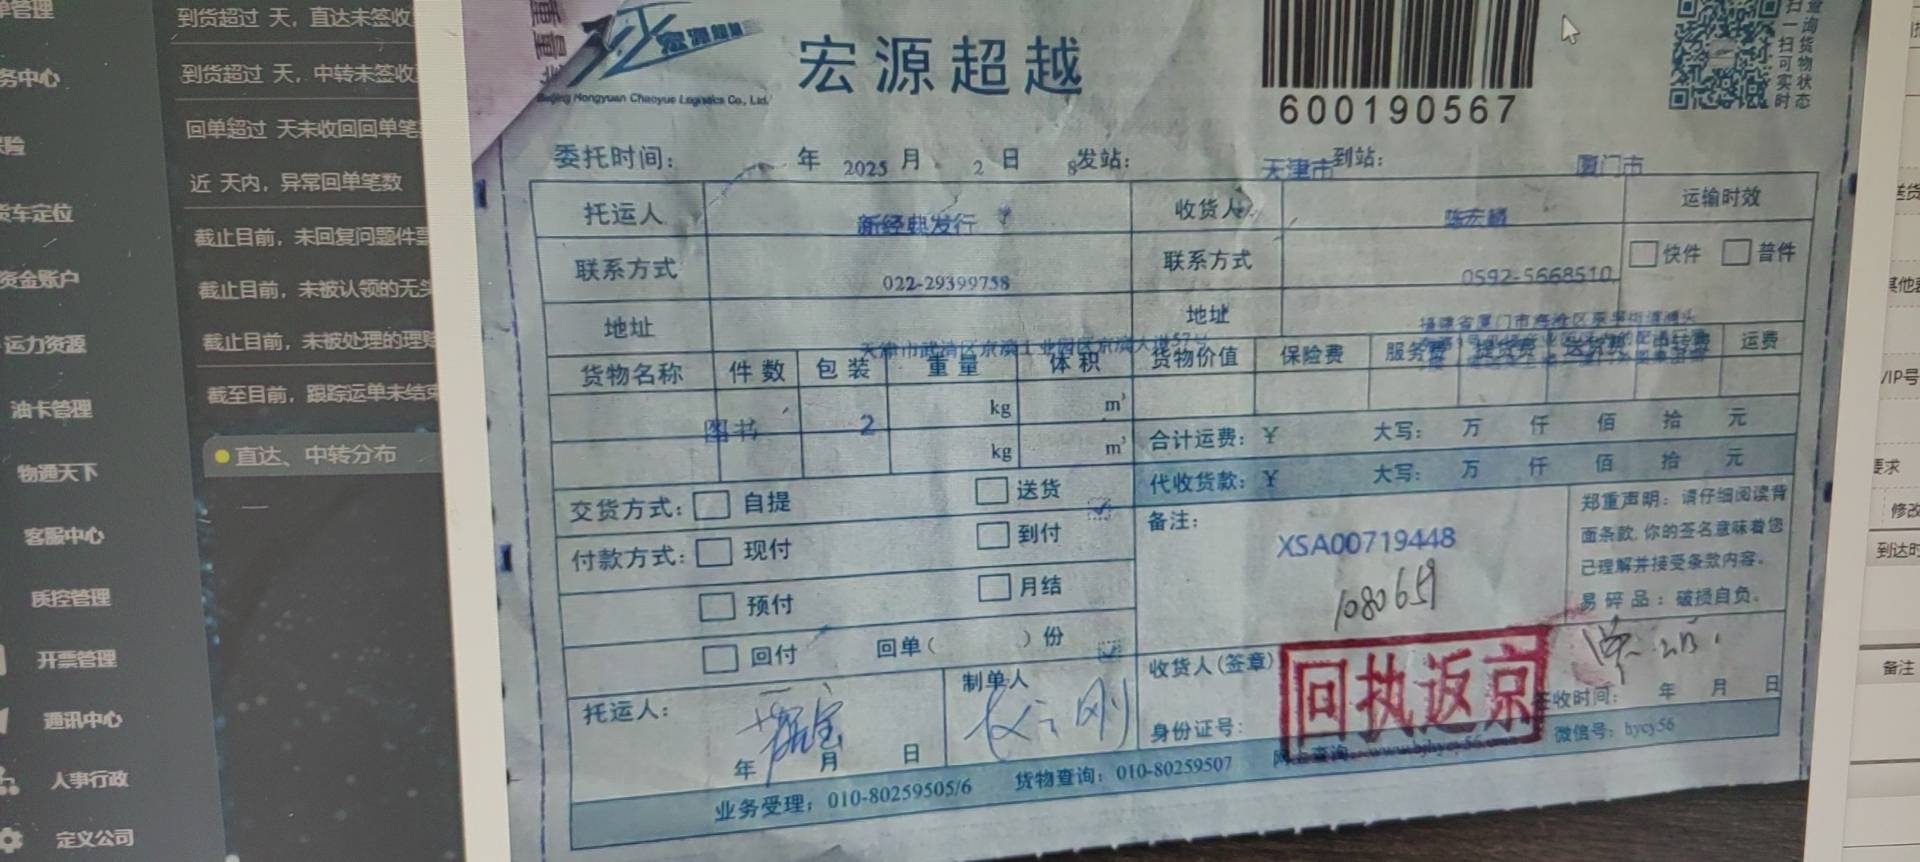 单管理
务中心
保险
货车定位
资金账户
运力资源
油卡管理
物通天下
客服中心
质控管理
开票管理
通讯中心
人事行政
定义公司
到货超过 天，直达未签收
到货超过 天，中转未签收
回单超过 天未收回回单笔
近 天内，异常回单笔数
截止目前，未回复问题件
截止目前，未被认领的无头
截止目前，未被处理的理赔
截至目前，跟踪运单未结束
直达、中转分布
宏源超越
Beijing Hongyuan Chaoyue Logistics Co., Ltd.
宏源超越
600190567
扫一扫可实时
查询货物状态
委托时间： 年 2025 月 2 日 8 发站： 天津市 到站： 厦门市
托运人 新经典发行 收货人 运输时效
联系方式 022-29399758 联系方式 0592-5668510 快件 普件
地址 天津市武清区京滨工业园区京滨大道57号 地址
货物名称 件数 包装 重量 体积 货物价值 保险费 服务费 运费
kg m³
图书 2
合计运费：¥ 大写： 万 仟 佰 拾 元
kg m³
代收货款：¥ 大写： 万 仟 佰 拾 元
交货方式： 自提 送货
付款方式： 现付 到付
预付 月结
回付 回单（ ）份
备注：
XSA00719448
1080659
郑重声明：请仔细阅读背
面条款，你的签名意味着您
已理解并接受条款内容。
易碎品：破损自负。
托运人：
年 月 日
制单人
收货人(签章)
回执返京
身份证号：
签收时间： 年 月 日
业务受理：010-80259505/6 货物查询：010-80259507 网上查询：www.bjhycy56.com 微信号：hycy56
送货
其他
VIP号
要求
修改
到达时
备注